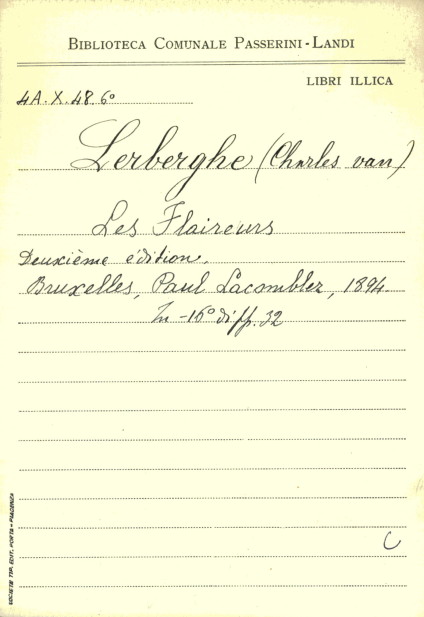 BIBLIOTECA COMUNALE PASSERINI-LANDI
LIBRI ILLICA
4A. X. 48. 6º
Lerberghe (Charles van)
Les Flaireurs
Deuxième édition.
Bruxelles, Paul Lacomblez, 1894.
In -16º di pp. 32
C
SOCIETÀ TIP. EDIT. PORTA - PIACENZA